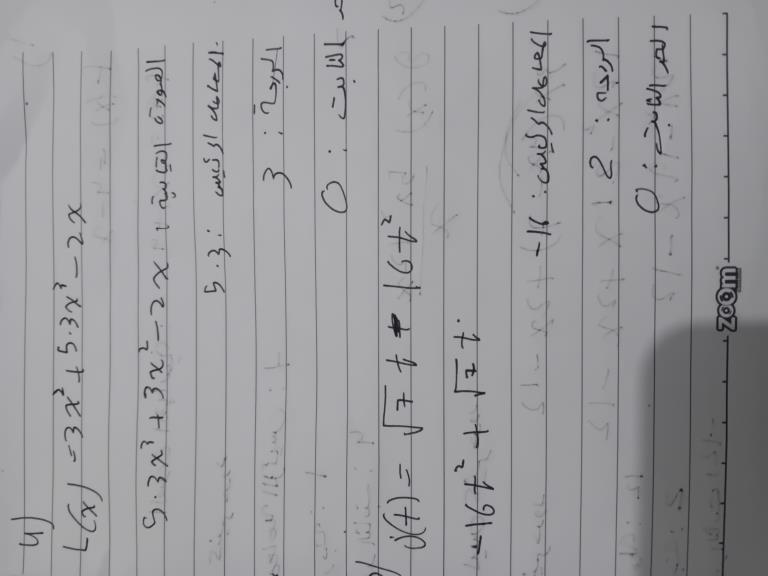 4)
L(x) = 3x² + 5.3x³ - 2x
5.3x³ + 3x² - 2x : الصورة القياسية
المعامل الرئيس : 5.3
الدرجة : 3
الثابت : 0
j(t) = √7 t + 16t²
-16t² + √7 t
المعامل الرئيس : -16
الدرجة : 2
الحد الثابت : 0
zoom